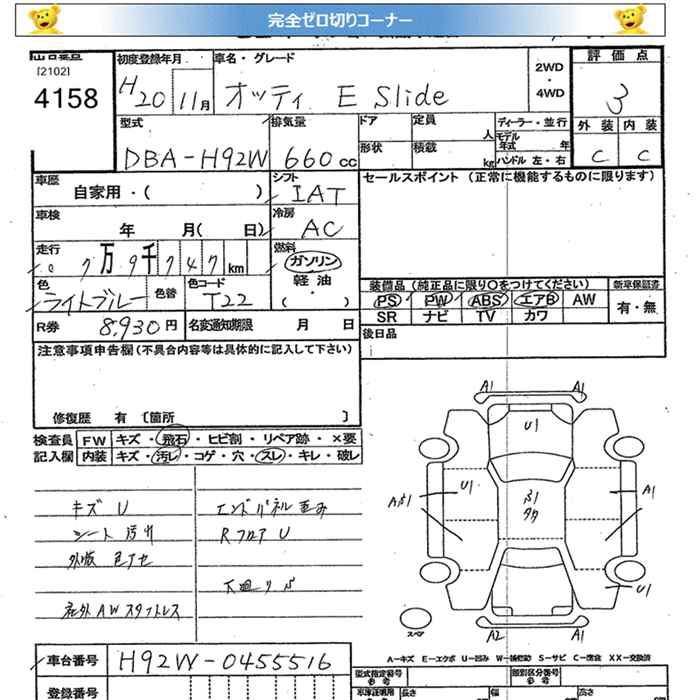 完全ゼロ切りコーナー
[2102]
4158
初度登録年月
H20 11月
車名・グレード
オッティ E Slide
2WD
・
4WD
評価点
3
外装 内装
C C
型式
DBA-H92W
排気量
660cc
ドア
形状
定員
人
積載
kg
ディーラー・並行
モデル
年式 年
ハンドル 左・右
車歴
自家用・( )
シフト
IAT
セールスポイント (正常に機能するものに限ります)
車検
年 月( 日)
冷房
AC
走行
07万9千747km
燃料
ガソリン
軽油
( ・ )
色
ライトブルー
色替
色コード
T22
装備品 (純正品に限り○をつけてください)
新車保証書
PS PW ABS エアB AW
SR ナビ TV カワ
有・無
R券 8,930円
名変通知期限 月 日
後日品
注意事項申告欄 (不具合内容等は具体的に記入して下さい)
修復歴 有 〔箇所 〕
検査員
記入欄
FW キズ・飛石・ヒビ割・リペア跡・×要
内装 キズ・汚レ・コゲ・穴・スレ・キレ・破レ
キズ U
シート 汚レ
外板 色アセ
社外AWスタットレス
エンドパネル歪み
Rフロア U
下廻りS
A1 A1
U1
U1
A1
A1
U1
A2 A1
スペア
A-キズ E-エクボ U-凹み W-補修跡 S-サビ C-腐食 XX-交換済
車台番号
H92W-0455516
登録番号
型式指定番号
参考
類別区分番号
参考
長さ
幅
高さ